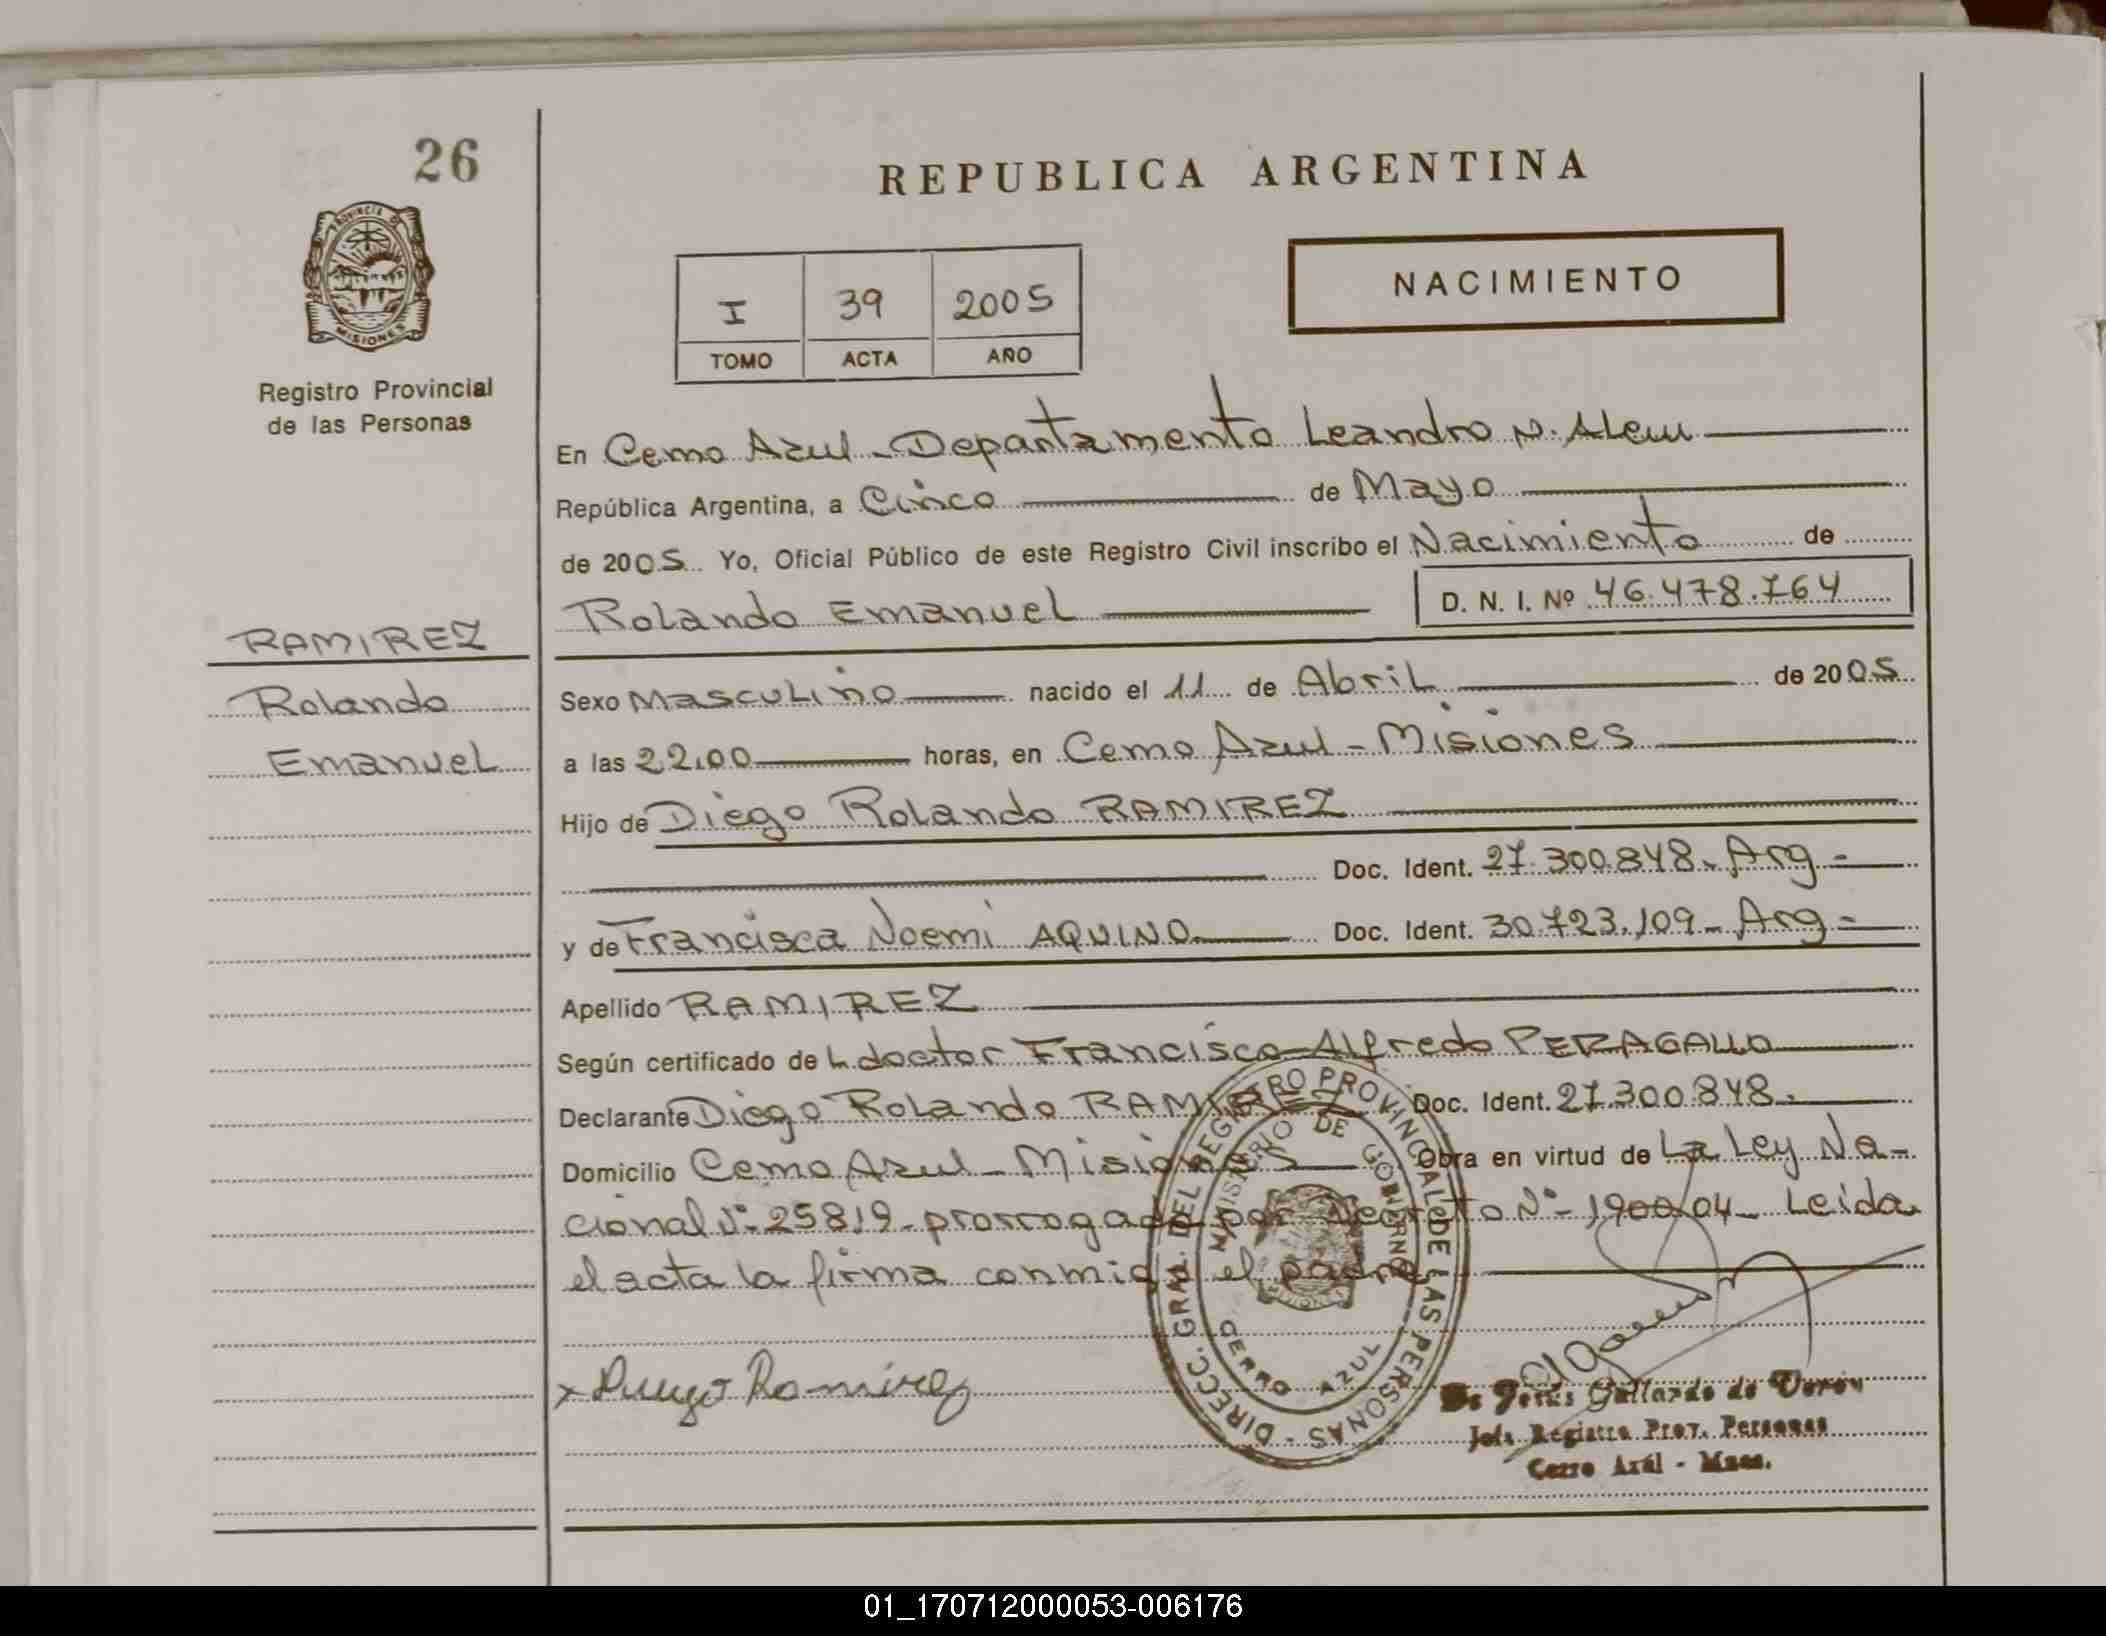 26
REPUBLICA ARGENTINA
PROVINCIA DE
MISIONES
Registro Provincial
de las Personas
NACIMIENTO
I 39 2005
TOMO ACTA AÑO
En Cerro Azul - Departamento Leandro N. Alem
República Argentina, a Cinco de Mayo
de 2005 Yo, Oficial Público de este Registro Civil inscribo el Nacimiento de
Rolando Emanuel D. N. I. Nº 46.478.764
RAMIREZ
Rolando
Emanuel
Sexo Masculino nacido el 11 de Abril de 2005
a las 22,00 horas, en Cerro Azul - Misiones
Hijo de Diego Rolando RAMIREZ
Doc. Ident. 27.300.848. Arg -
y de Francisca Noemi AQUINO Doc. Ident. 30.723.109 - Arg -
Apellido RAMIREZ
Según certificado de L doctor Francisco Alfredo PERAGALLO
Declarante Diego Rolando RAMIREZ Doc. Ident. 27.300.848.
Domicilio Cerro Azul - Misiones Obra en virtud de La Ley Na-
cional Nº 25819 - prorrogada por Decreto Nº - 1900/04 - Leida
el acta la firma conmigo el padre
DIRECC. GRAL. DEL REGISTRO PROVINCIAL DE LAS PERSONAS -
MINISTERIO DE GOBIERNO
CERRO AZUL
x Diego Ramirez
De Jesús Gallardo de
Jefe Registro Prov. Personas
Cerro Azúl - Mnes.
01_170712000053-006176